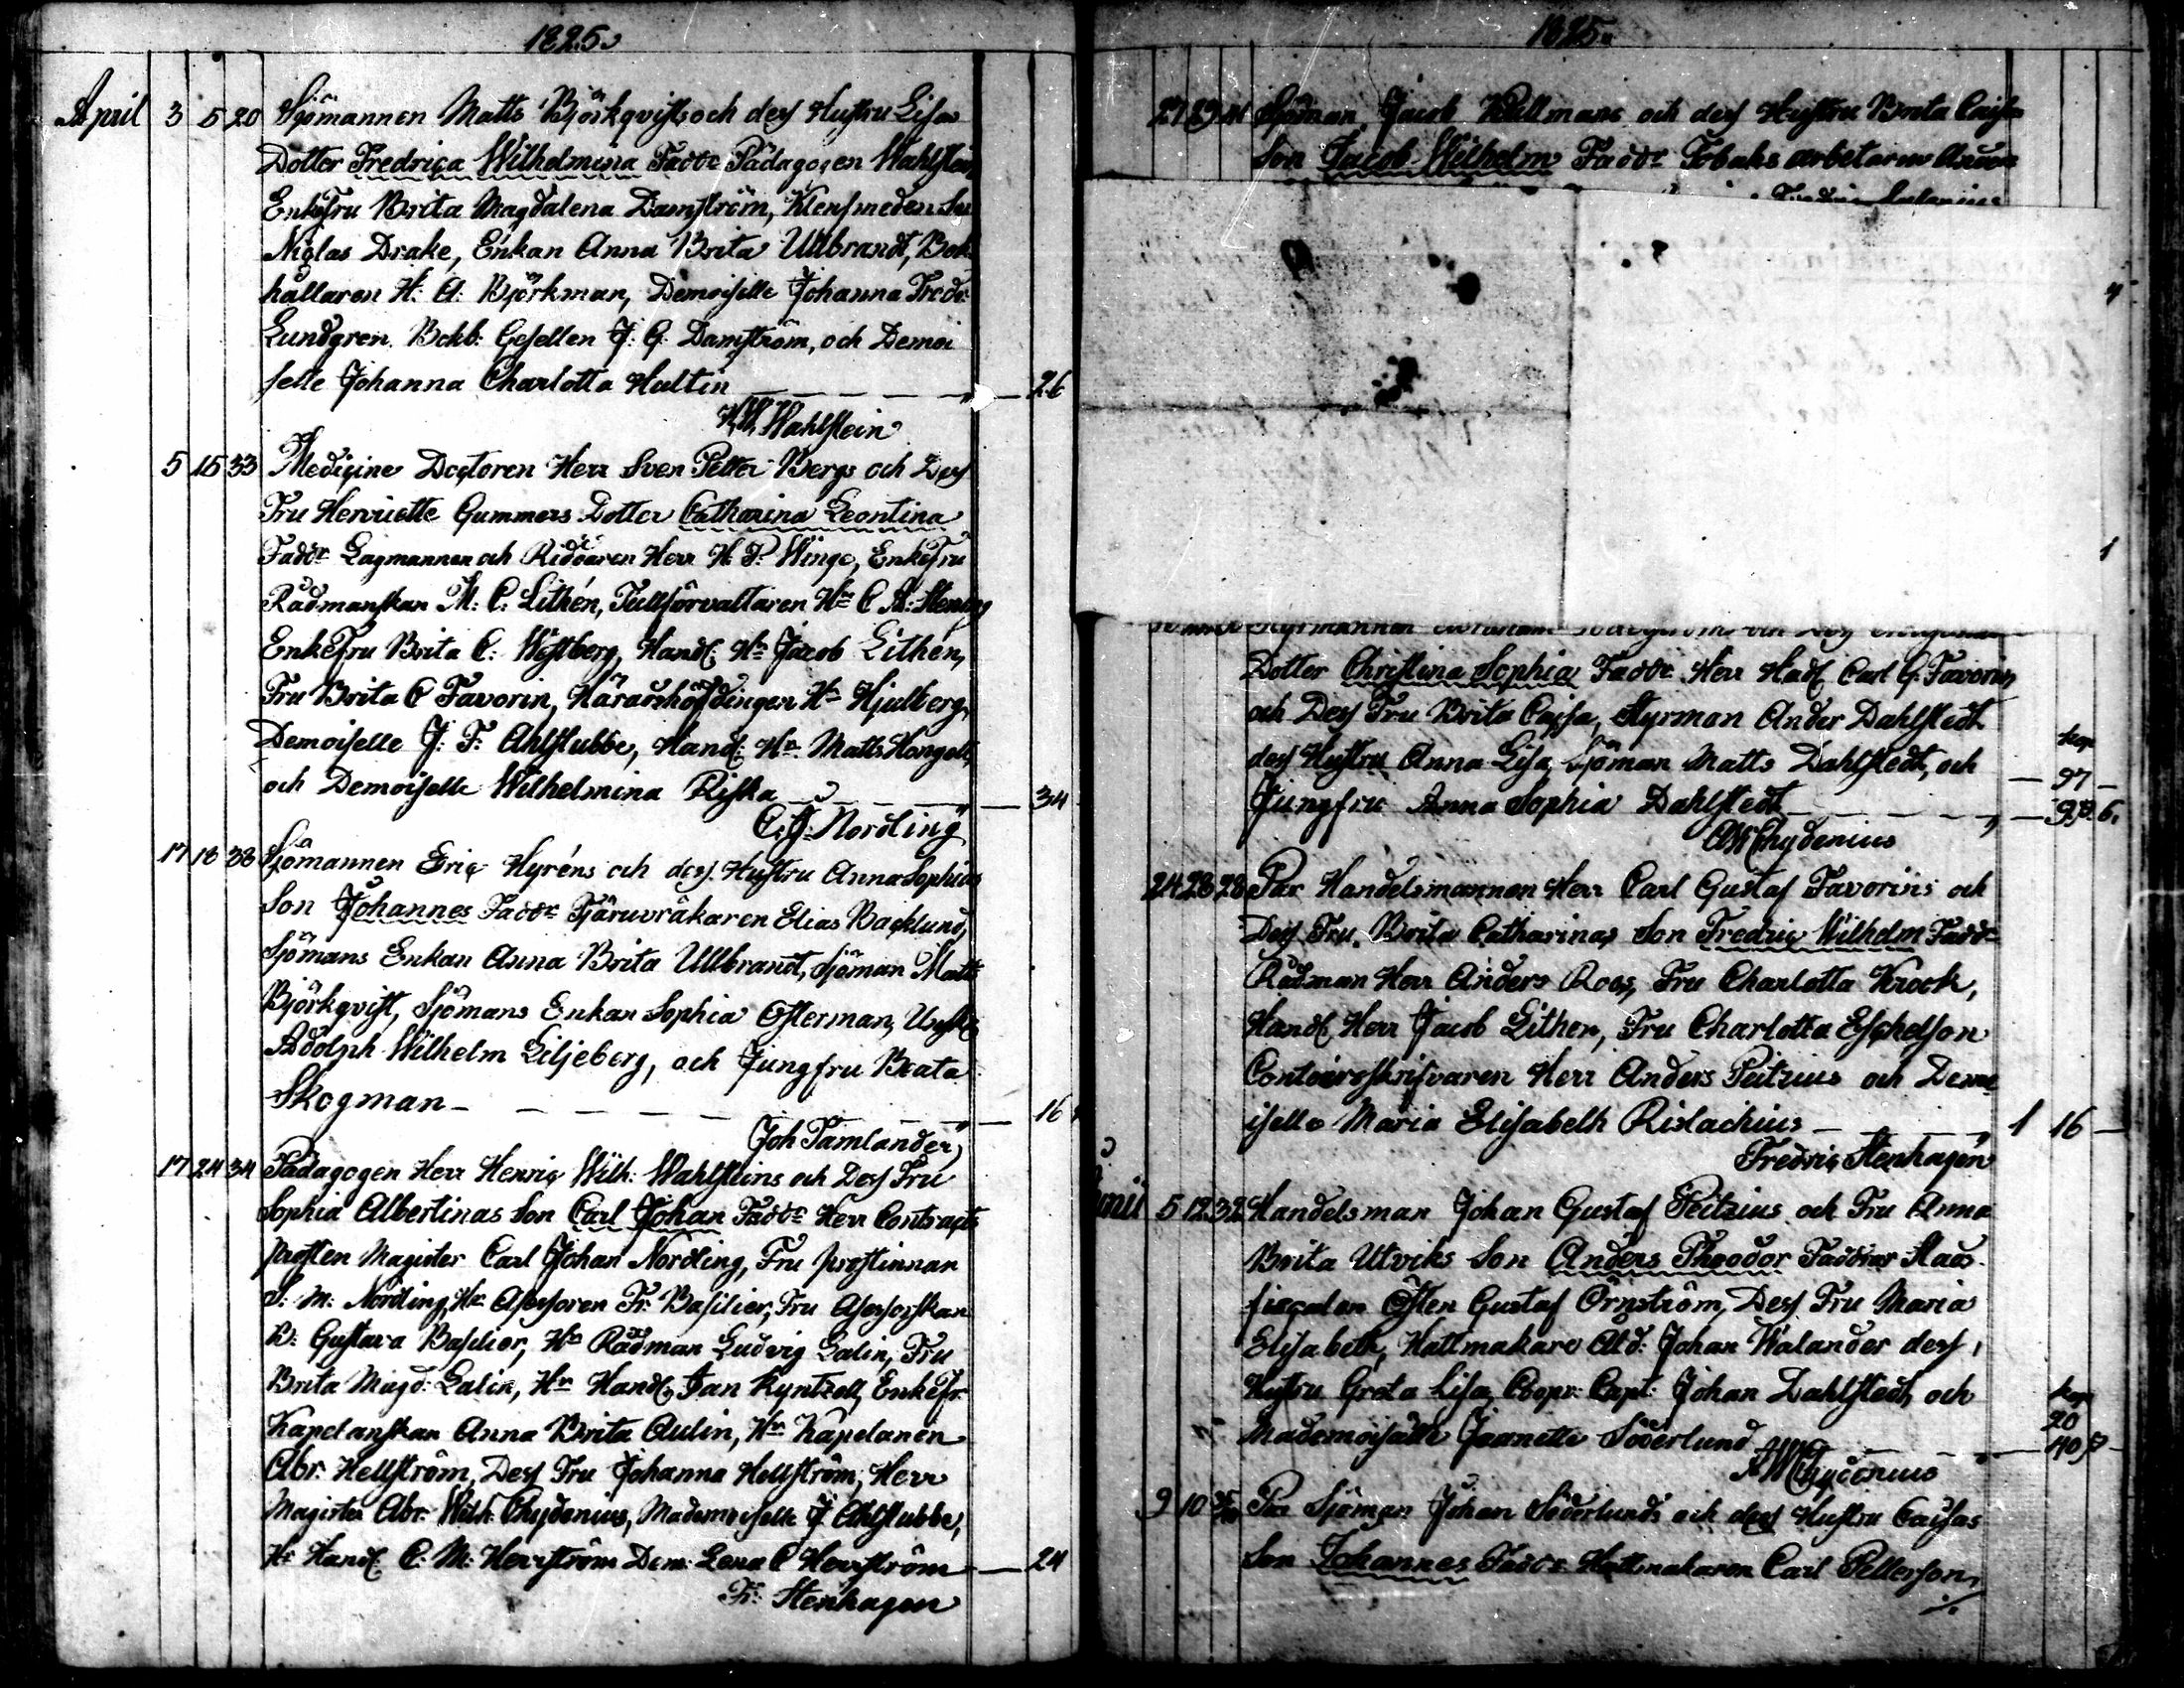 1825.
April 3 5 20 Sjömannen Matts Björkqvists och dess Hustru Lisas
Dotter Fredrica Wilhelmina Faddr Pädagogen Wahlstein
Enkefru Brita Magdalena Damström, Klensmeden
Niclas Drake, Enkan Anna Brita Ullbrandt, Bok
hållaren H: A: Björkman, Demoiselle Johanna Fredr:
Lundgren Bokb: Gesellen J: G: Damström, och Demoi
selle Johanna Charlotta Hultin — 26
H. W. Wahlstein
5 15 33 Medicine Doctoren Herr Sven Petter Bergs och Dess
Fru Henriette Gummers Dotter Catharina Leontina
Faddr Lagmannen och Riddaren Herr H. P. Winge, EnkeFru
Rådmanskan M: C: Lithén, Tullförvaltaren Hr C A:
EnkeFru Brita C: Westberg, Handl: Hr Jacob Lithén,
Fru Brita C Favorin, Häradshöfdingen Hr Hjulberg,
Demoiselle J: F: Ahlstubbe, Handl: Hr Matts Hongell,
och Demoiselle Wilhelmina Riska — 34
C. J: Nordling
17 18 38 Sjömannen Eric Hyréns och dess Hustru Anna Sophias
Son Johannes Faddr Tjäruvräkaren Elias Backlund,
Sjömans Enkan Anna Brita Ullbrandt, Sjöman Matts
Björkqvist, Sjömans Enkan Sophia Österman,
Adolph Wilhelm Liljeberg, och Jungfru Beata
Skogman — 16
Joh Tamlander
17 24 34 Pädagogen Herr Henric Wilh: Wahlsteins och Dess Fru
Sophia Albertinas Son Carl Johan Faddr Herr Contracts
prosten Magister Carl Johan Nordling, Fru prostinnan
S: M: Nordling, Hr Assessoren Fr: Basilier, Fru Assessorskan
Gustava Basilier, Hr Rådman Ludvig Galin, Fru
Brita Magd: Galin, Hr Handl: Jan Kyntzell, EnkeFr:
Kapelanskan Anna Brita Aulin, Hr Kapelanen
Abr: Hellström, Dess Fru Johanna Hellström, Herr
Magister Abr: Wilh: Chydenius, Mademoiselle J Ahlstubbe,
Hr Handl: C: M: Herrström Dem: Lena C Herrström — 24
Fr: Stenhagen
1825.
27 29 Sjöman Jacob Kullmans och dess Hustru Brita Caisas
Son Jacob Wilhelm Faddr Tobaks arbetaren
Dotter Christina Sophia Faddr Herr Handl Carl G. Favorin,
och Dess Fru Brita Cajsa, Styrman Ander Dahlstedt
dess Hustru Anna Lisa Sjöman Matts Dahlstedt, och
kop
— 97 —
Jungfru Anna Sophia Dahlstedt
AWChydenius
24 28 28 Par Handelsmannen Herr Carl Gustaf Favorins och
Dess Fru Brita Catharinas Son Fredric Wilhelm Faddr
Rådman Herr Anders Roos, Fru Charlotta Krook,
Handl Herr Jacob Lithen, Fru Charlotta Eschelson
Contoirsskrifvaren Herr Anders Peitzius och Demo
iselle Maria Elisabeth Rislachius — 1 16 —
Fredric Stenhagen
Junii 5 12 32 Handelsman Johan Gustaf Peitzius och Fru Anna
Brita Utviks Son Anders Theodor Faddrar Stads
fiscalen Östen Gustaf Örnström, Dess Fru Maria
Elisabeth, Hattmakare Åld: Johan Walander dess
Hustru Greta Lisa Coopv: Capt: Johan Dahlstedt, och
kop
20
Mademoiselle Jeanette Söderlund — 40
AWChydenius
9 10 Par Sjöman Johan Söderlunds och dess Hustru Caisas
Son Johannes Faddr Hattmakaren Carl Petterson,